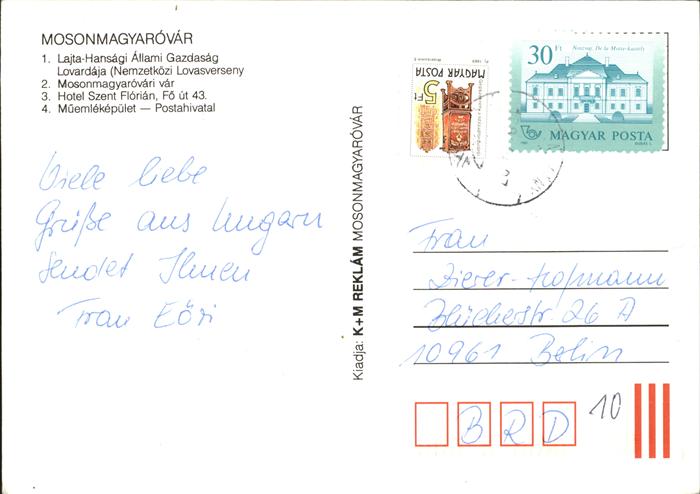 MOSONMAGYARÓVÁR
1. Lajta-Hansági Állami Gazdaság
Lovardája (Nemzetközi Lovasverseny
2. Mosonmagyaróvári vár
3. Hotel Szent Flórián, Fő út 43.
4. Műemléképület — Postahivatal
Viele liebe
Grüße aus Ungarn
sendet Ihnen
Frau Eőri
Kiadja: K+M REKLÁM MOSONMAGYARÓVÁR
MAGYAR POSTA
5Ft
30Ft
Nosztagi De la Motte-kastély
MAGYAR POSTA
Frau
Zierer-Hofmann
Blücherstr. 26 A
10961 Berlin
BRD
10